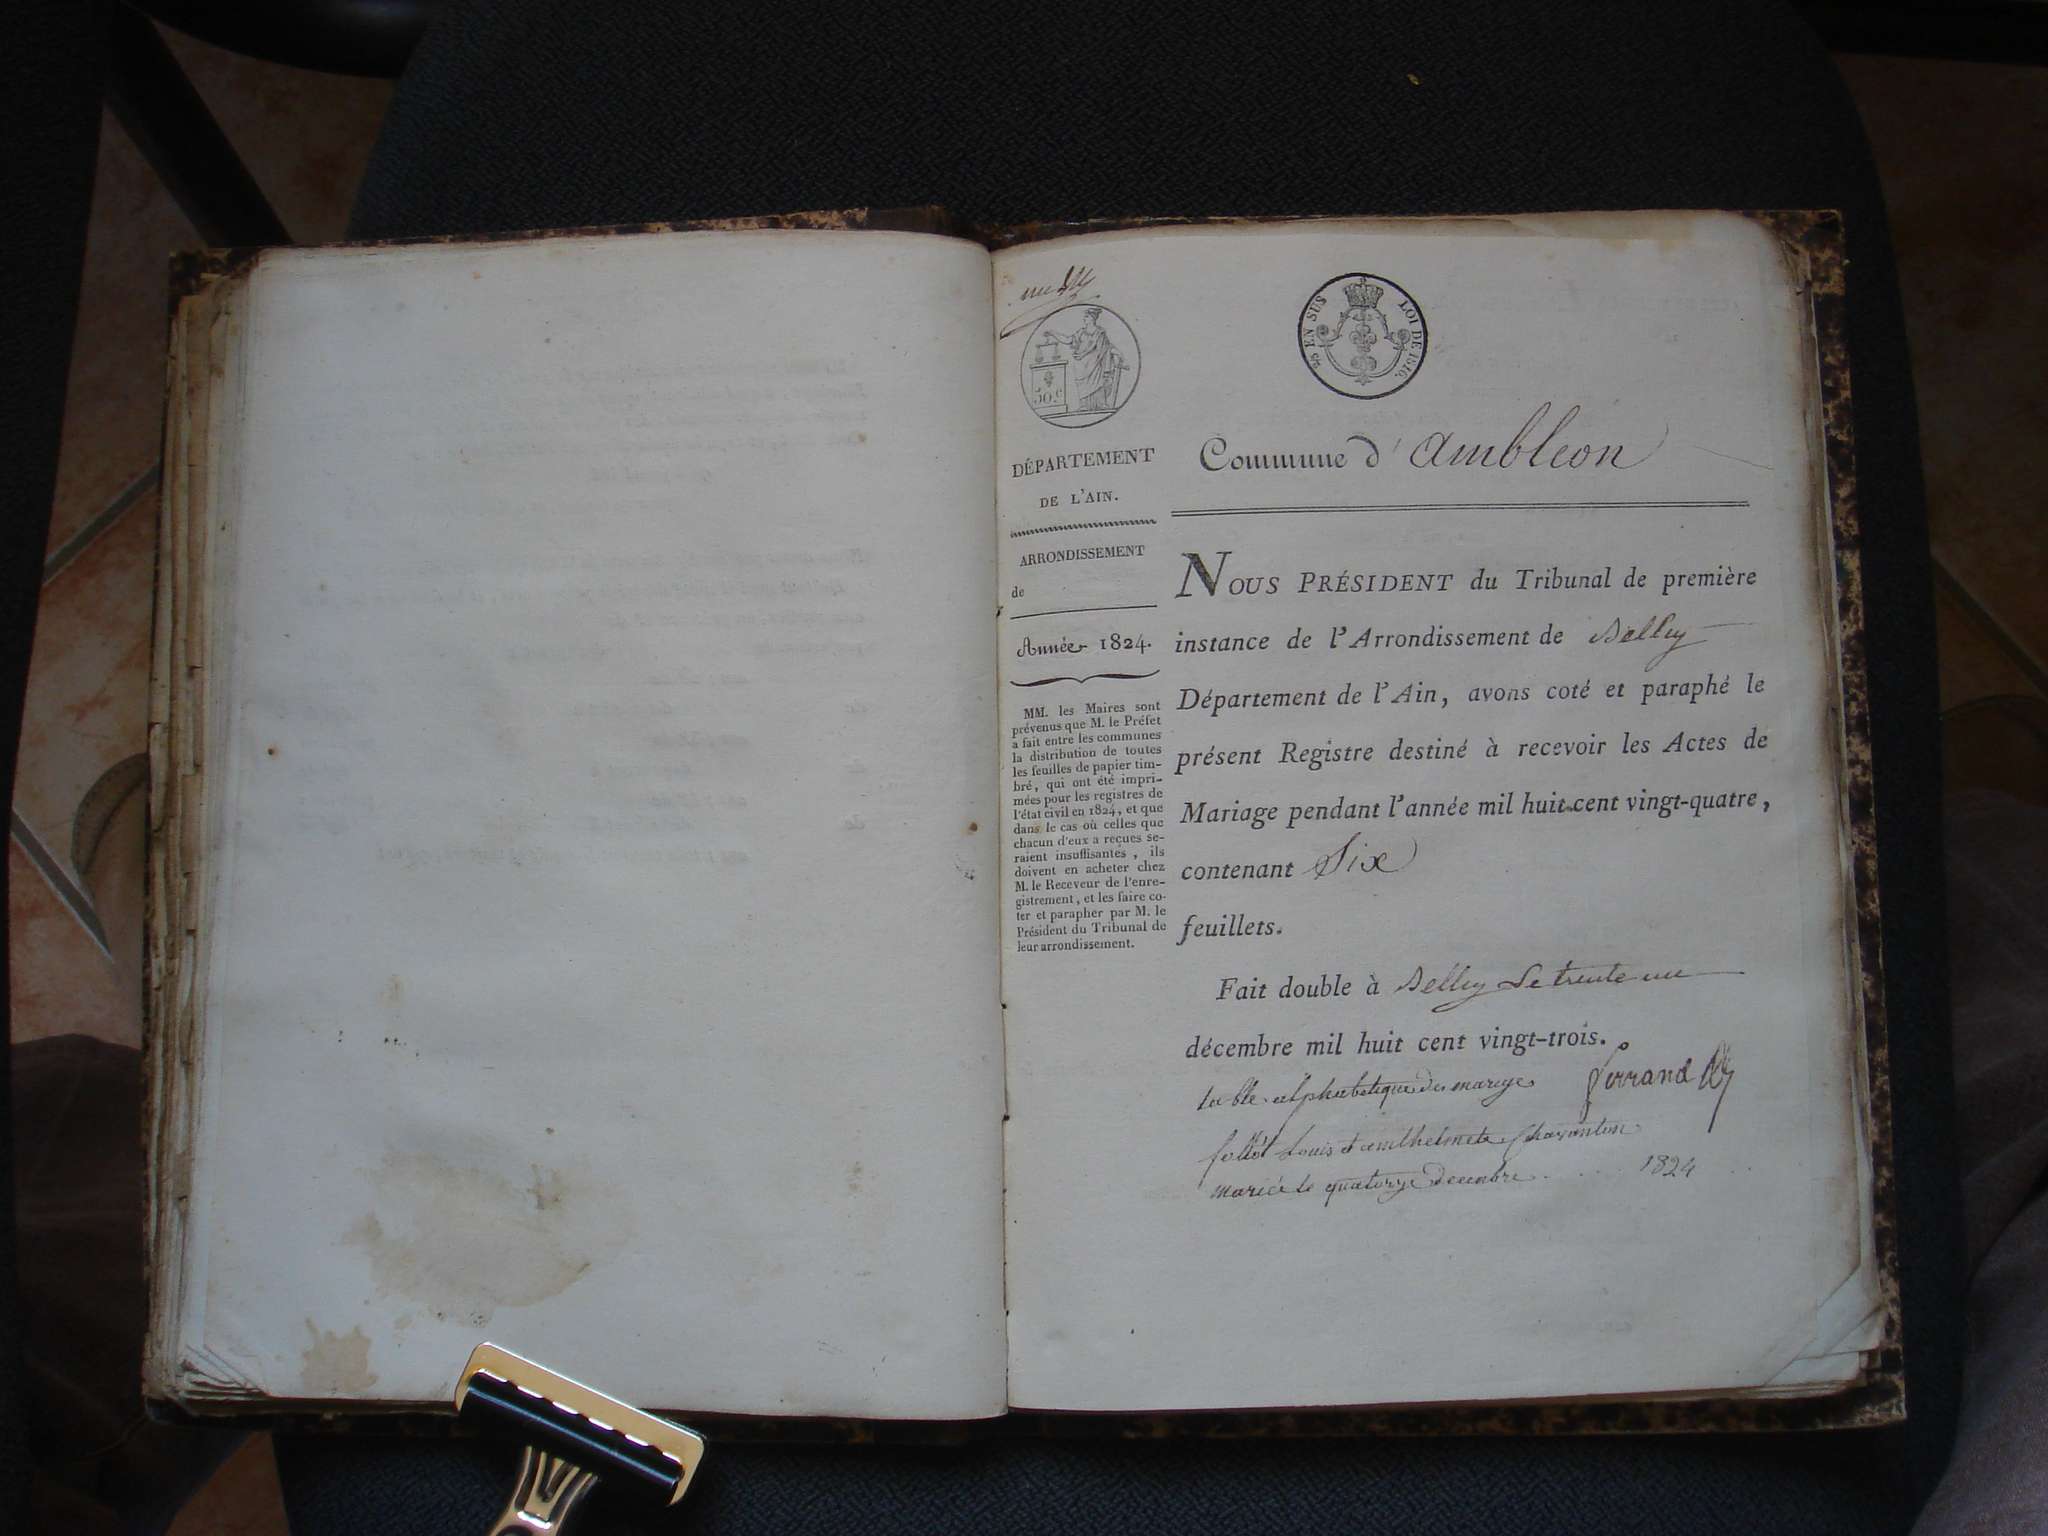 50.c
DÉPARTEMENT
DE L'AIN.
ARRONDISSEMENT
de
Année 1824.
MM. les Maires sont
prévenus que M. le Préfet
a fait entre les communes
la distribution de toutes
les feuilles de papier tim-
bré, qui ont été impri-
mées pour les registres de
l'état civil en 1824, et que
dans le cas où celles que
chacun d'eux a reçues se-
raient insuffisantes, ils
doivent en acheter chez
M. le Receveur de l'enre-
gistrement, et les faire co-
ter et parapher par M. le
Président du Tribunal de
leur arrondissement.
EN SUS LOI DE 1816.
Commune d'ambleon
NOUS PRÉSIDENT du Tribunal de première
instance de l'Arrondissement de Belley
Département de l'Ain, avons coté et paraphé le
présent Registre destiné à recevoir les Actes de
Mariage pendant l'année mil huit cent vingt-quatre,
contenant Six
feuillets.
Fait double à Belley Le trente un
décembre mil huit cent vingt-trois.
table alphabetique des mariges
Louis et
marié le quatorze decembre . . . . 1824